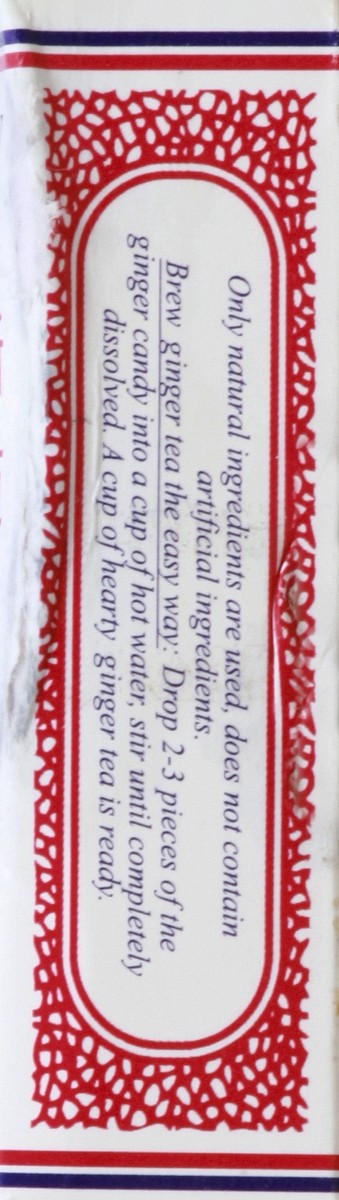 Only natural ingredients are used, does not contain
artificial ingredients.
Brew ginger tea the easy way: Drop 2-3 pieces of the
ginger candy into a cup of hot water, stir until completely
dissolved. A cup of hearty ginger tea is ready.